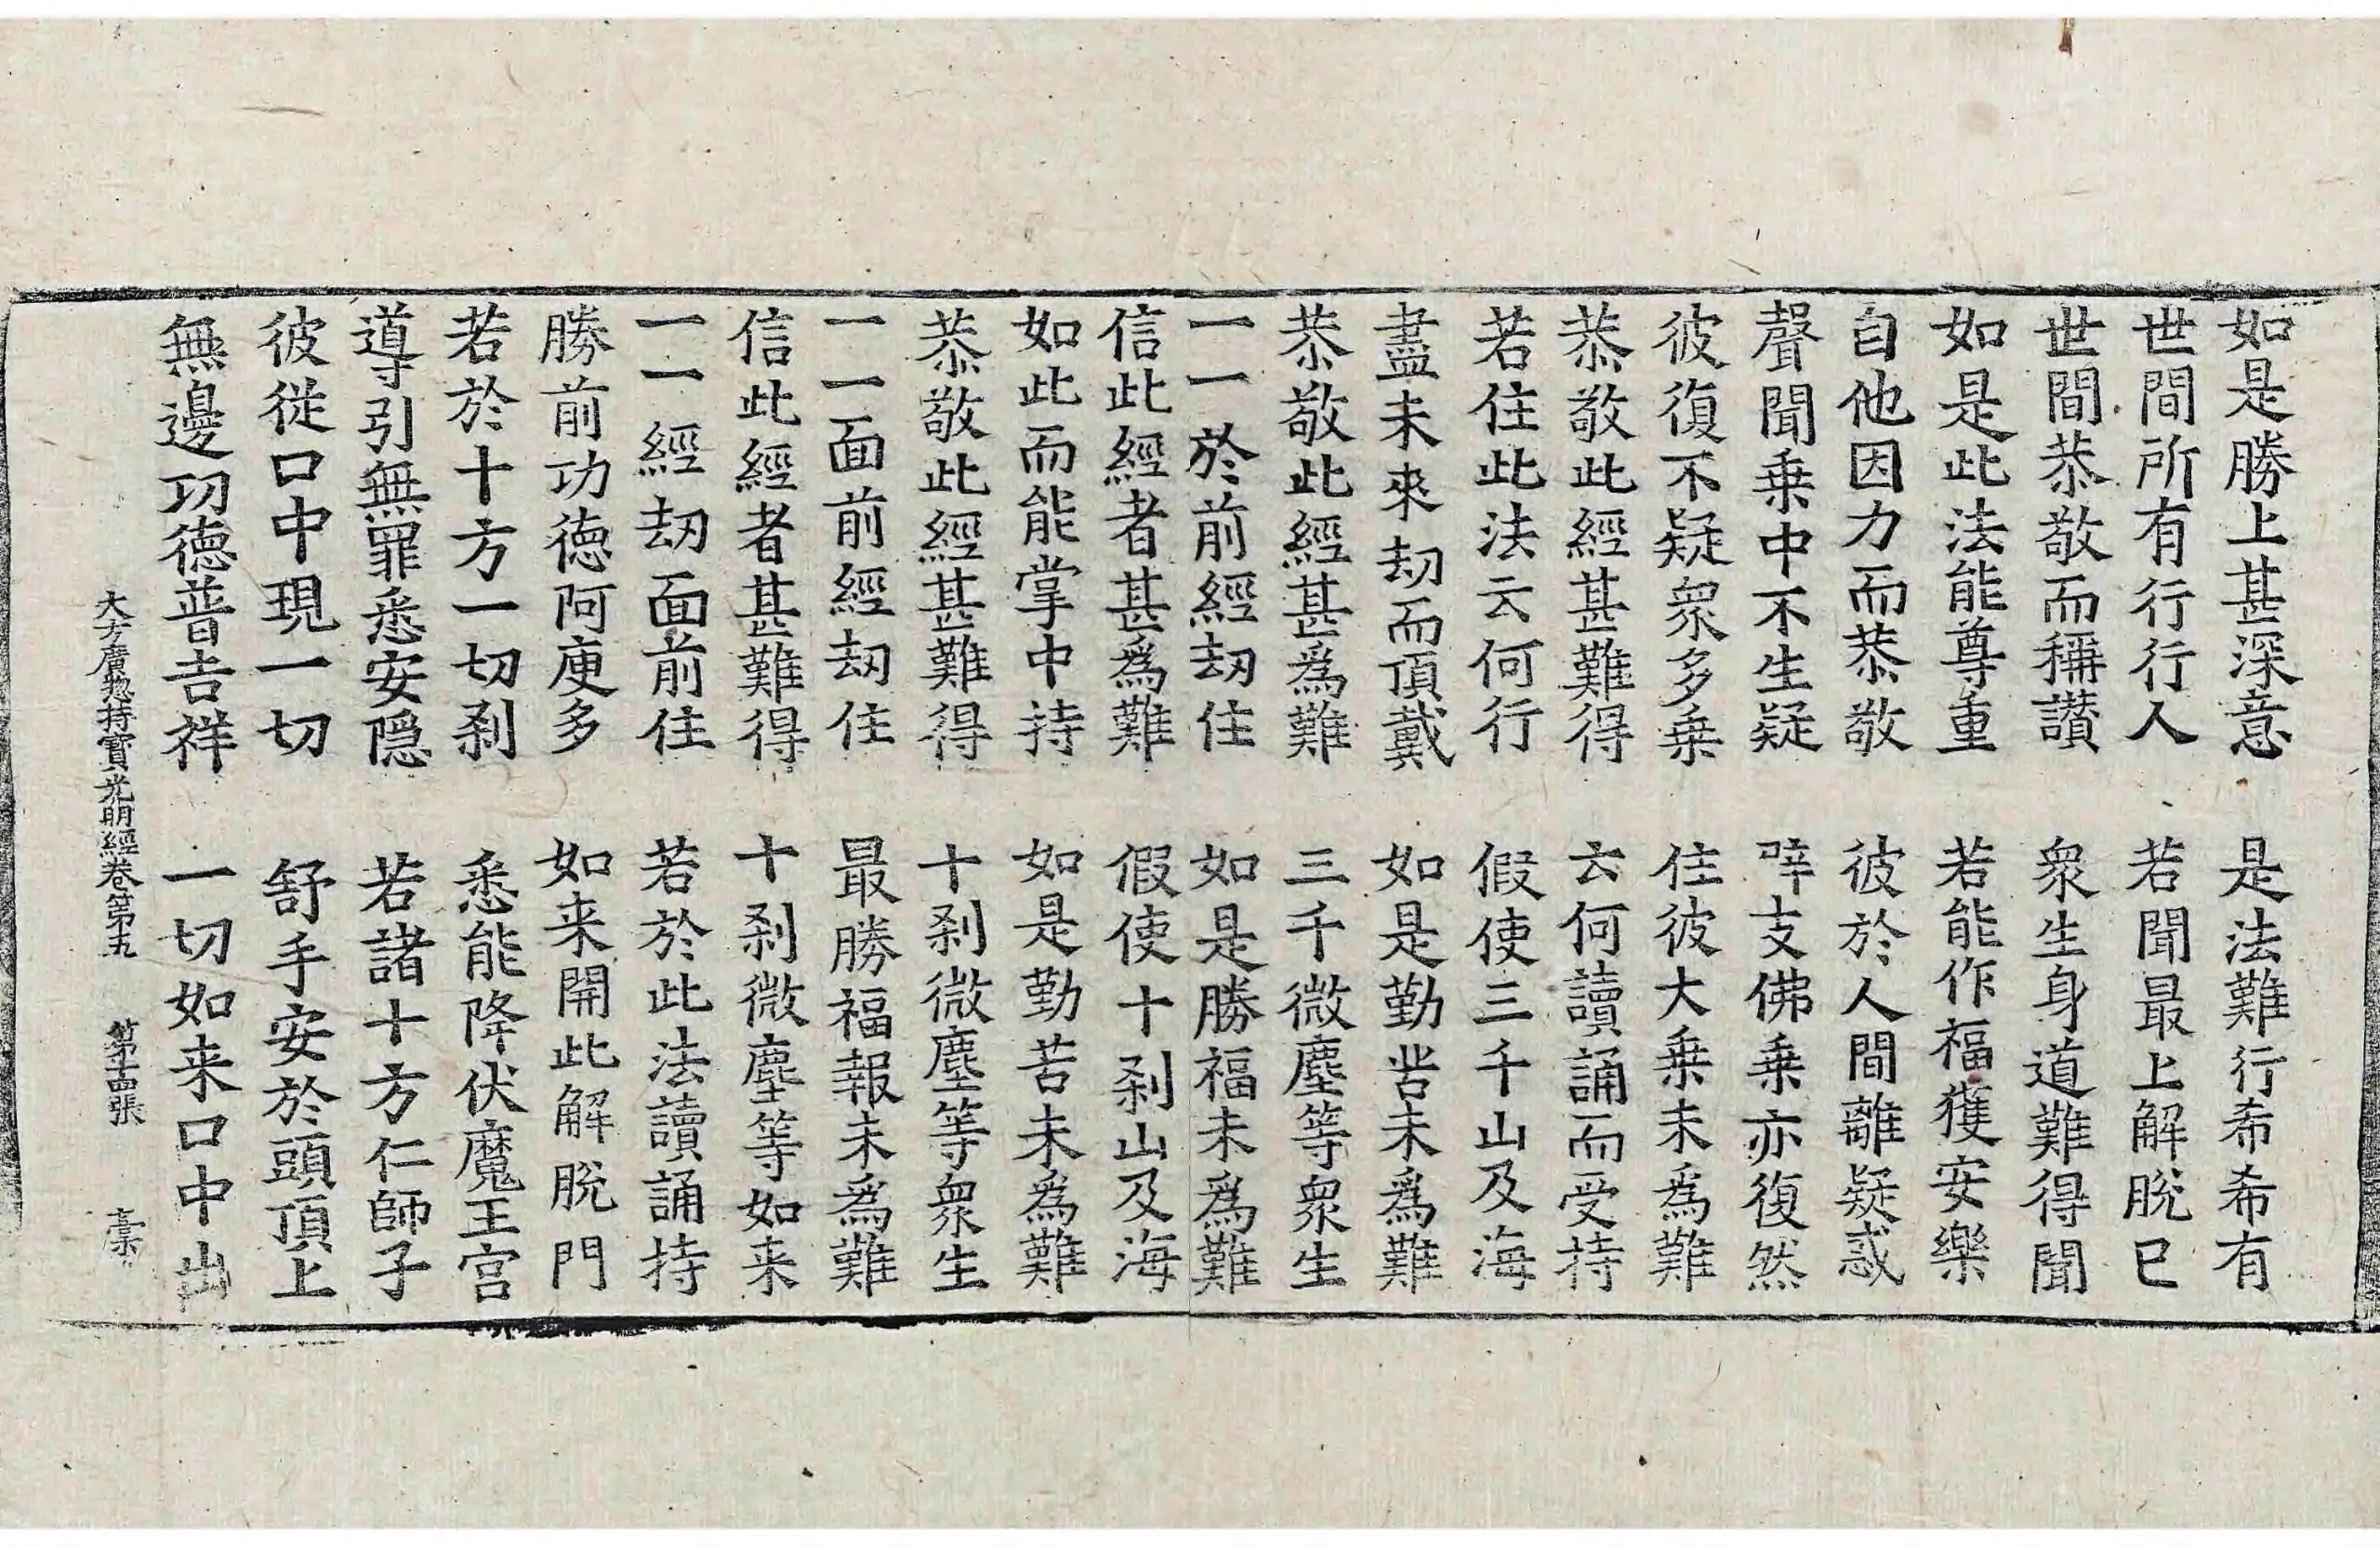 如是勝上甚深意　是法難行希希有
世間所有行行人　若聞最上解脫已
世間恭敬而稱讚　衆生身道難得聞
如是此法能尊重　若能作福獲安樂
自他因力而恭敬　彼於人間離疑惑
聲聞乗中不生疑　㖿支佛乗亦復然
彼復不疑衆多乗　住彼大乗未爲難
恭敬此經甚難得　云何讀誦而受持
若住此法云何行　假使三千山及海
盡未來劫而頂戴　如是勤苦未爲難
恭敬此經甚爲難　三千微塵等衆生
一一於前經劫住　如是勝福未爲難
信此經者甚爲難　假使十刹山及海
如此而能掌中持　如是勤苦未爲難
恭敬此經甚難得　十刹微塵等衆生
一一面前經劫住　最勝福報未爲難
信此經者甚難得　十刹微塵等如来
一一經劫面前住　若於此法讀誦持
勝前功德阿庾多　如来開此解脫門
若於十方一切刹　悉能降伏魔王宮
導引無罪悉安隱　若諸十方仁師子
彼從口中現一切　舒手安於頭頂上
無邊功德普吉祥　一切如来口中出
大方廣惣持寳光明經卷第五　第十四張　槀